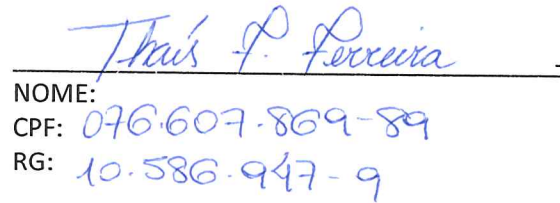 Thaís P. Ferreira
NOME:
CPF: 076.607.869-89
RG: 10.586.947-9